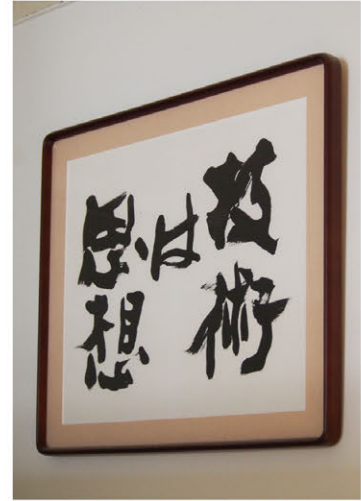 技術
は
思想